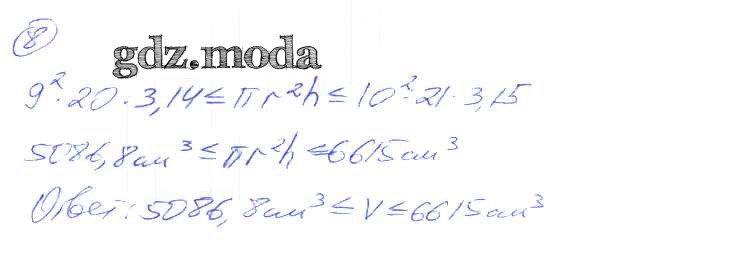 8
gdz.moda
9²·20·3,14≤πr²h≤10²·21·3,15
5086,8см³≤πr²h≤6615см³
Ответ: 5086,8см³≤V≤6615см³